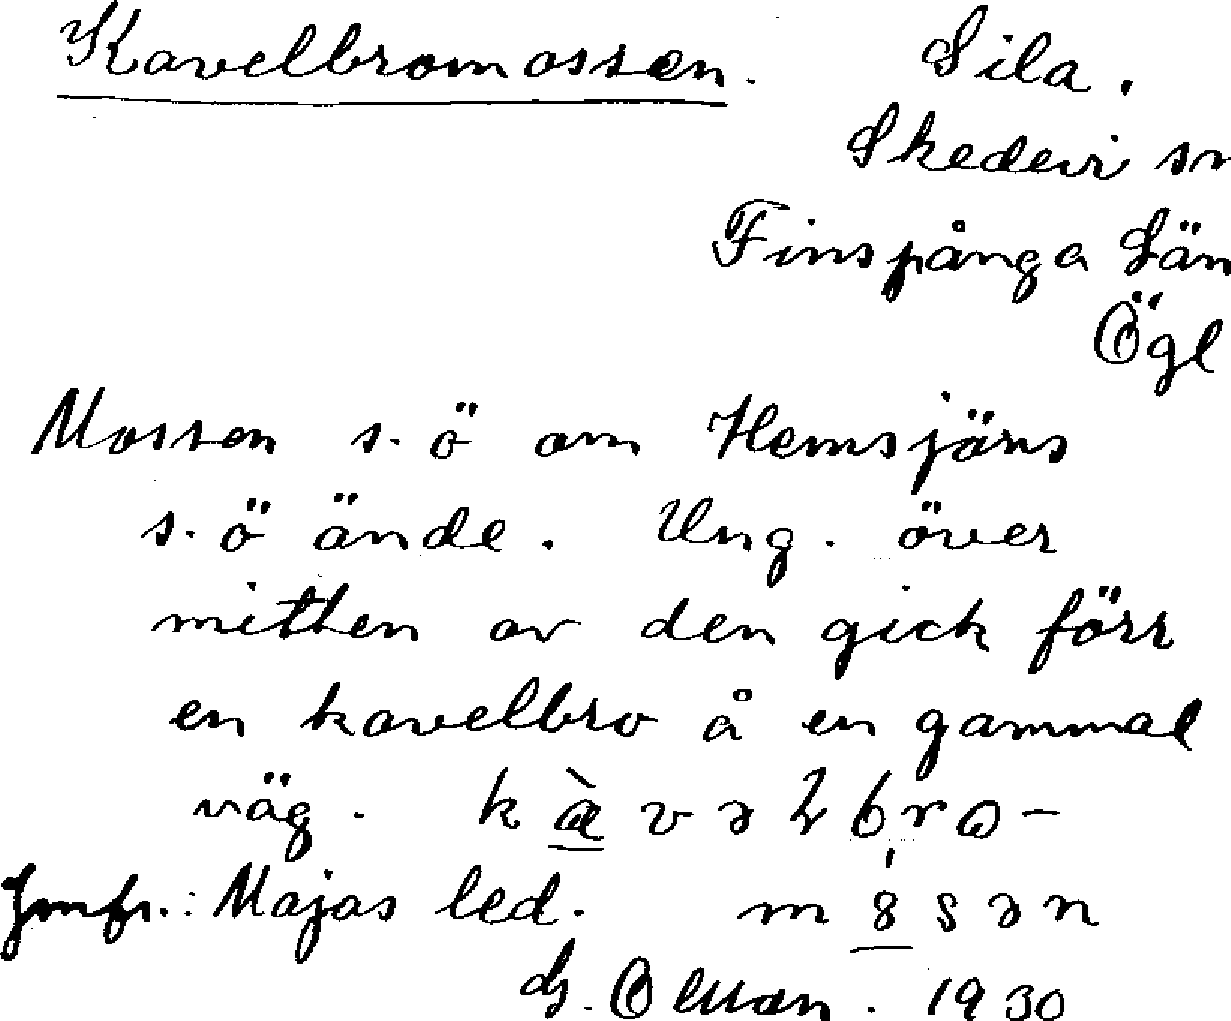 Kavelbromossen. Sila.
Skedevi sn
Finspånga Län
Ögl
Mossen s.ö om Hemsjöns
s.ö ände. Ung. över
mitten av den gick förr
en kavelbro å en gammal
väg.
Jmfr.: Majas led.
G. Ollson. 1930